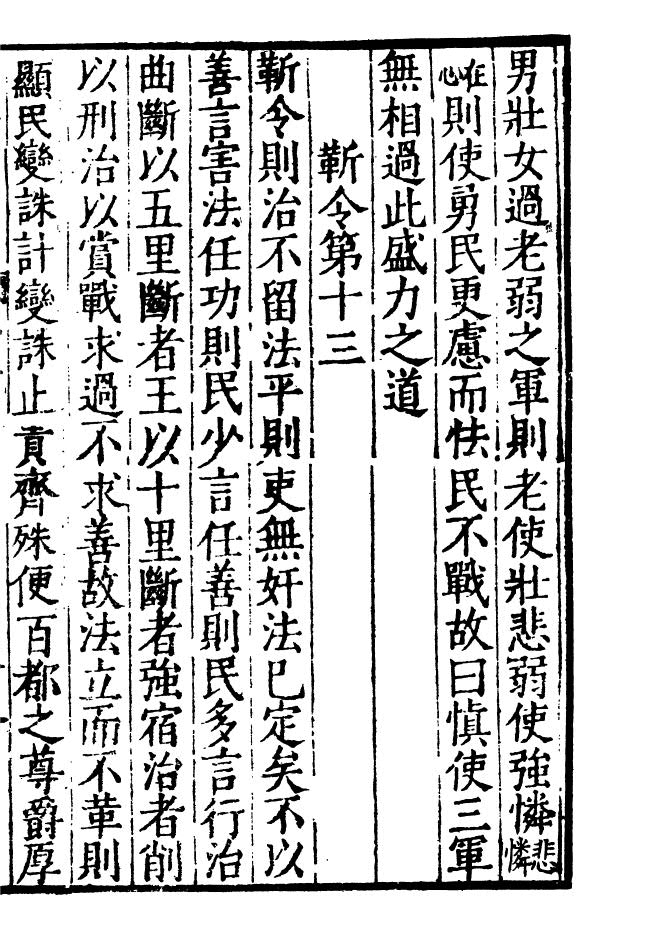 男壯女過老弱之軍則老使壯悲弱使強憐悲憐
在心則使勇民更慮而怯民不戰故曰慎使三軍
無相過此盛力之道
靳令第十三
靳令則治不留法平則吏無奸法已定矣不以
善言害法任功則民少言任善則民多言行治
曲斷以五里斷者王以十里斷者強宿治者削
以刑治以賞戰求過不求善故法立而不革則
顯民變誅計變誅止貢齊殊便百都之尊爵厚